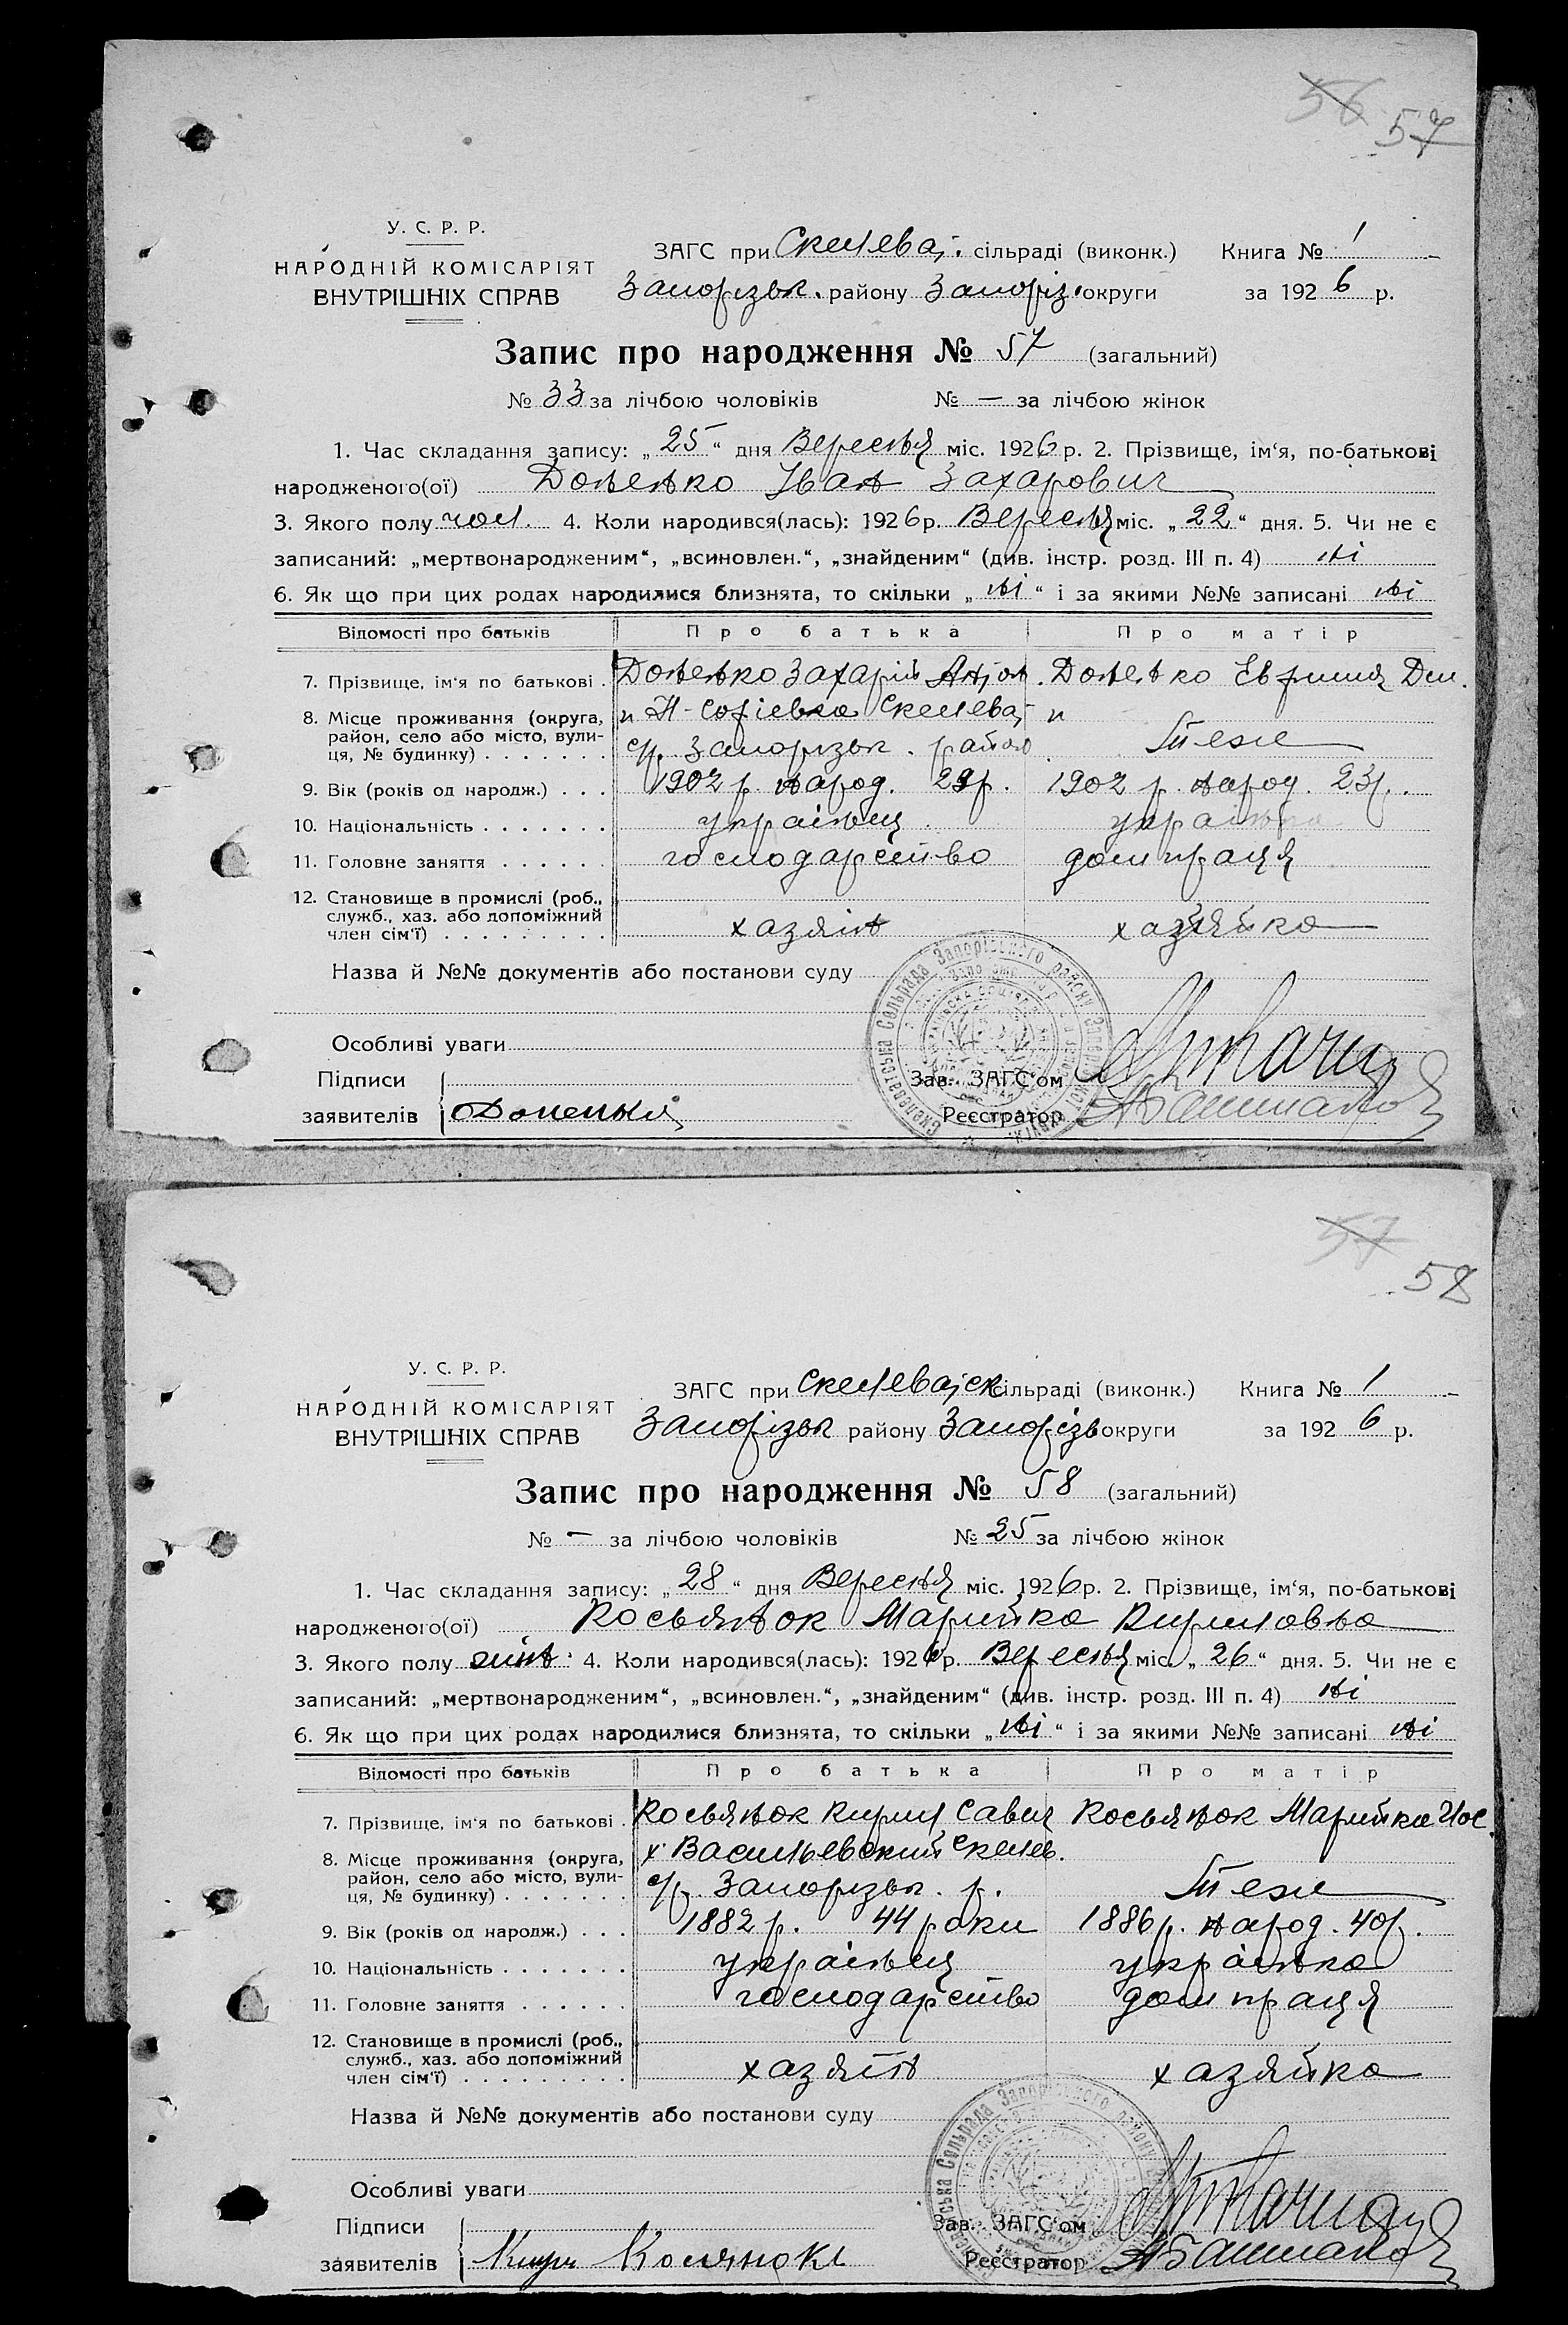 56 57
У. С. Р. Р.
НАРОДНІЙ КОМІСАРІЯТ
ВНУТРІШНІХ СПРАВ
ЗАГС при Скелеват. сільраді (виконк.) Книга № 1
Запорізьк. району Запоріз. округи за 1926 р.
Запис про народження № 57 (загальний)
№ 33 за лічбою чоловіків № — за лічбою жінок
1. Час складання запису: „25“ дня Вересня міс. 1926 р. 2. Прізвище, ім‘я, по-батькові
народженого(ої) Доненко Іван Захарович
3. Якого полу чол. 4. Коли народився(лась): 1926 р. Вересня міс. „22“ дня. 5. Чи не є
записаний: „мертвонародженим“, „всиновлен.“, „знайденим“ (див. інстр. розд. III п. 4) ні
6. Як що при цих родах народилися близнята, то скільки „ні“ і за якими №№ записані ні
Відомості про батьків Про батька Про матір
7. Прізвище, ім‘я по батькові . Доненко Захарій Антон. Доненко Евфимия Дем.
8. Місце проживання (округа, район, село або місто, вулиця, № будинку) . . . . . . .
Н-Софіевка Скелеват
с/р. Запорізьк. району Теже
9. Вік (років од народж.) . . . 1902 р. народ. 1902 р. народ. 23 р.
10. Національність . . . . . . . українец українка
11. Головне заняття . . . . . . господарство дом праця
12. Становище в промислі (роб., служб., хаз. або допоміжний член сім‘ї) . . . . . . . . . хазяїн хазяйка
Назва й №№ документів або постанови суду
Особливі уваги
Підписи
заявителів
Зав. ЗАГС‘ом
Реєстратор
57 58
У. С. Р. Р.
НАРОДНІЙ КОМІСАРІЯТ
ВНУТРІШНІХ СПРАВ
ЗАГС при Скелеватск сільраді (виконк.) Книга № 1
Запорізьк району Запорізь округи за 1926 р.
Запис про народження № 58 (загальний)
№ — за лічбою чоловіків № 25 за лічбою жінок
1. Час складання запису: „28“ дня Вересня міс. 1926 р. 2. Прізвище, ім‘я, по-батькові
народженого(ої) Косьянок Марийка Кириловна
3. Якого полу жін. 4. Коли народився(лась): 1926 р. Вересня міс. „26“ дня. 5. Чи не є
записаний: „мертвонародженим“, „всиновлен.“, „знайденим“ (див. інстр. розд. III п. 4) ні
6. Як що при цих родах народилися близнята, то скільки „ні“ і за якими №№ записані ні
Відомості про батьків Про батька Про матір
7. Прізвище, ім‘я по батькові . Косьянок Кирил Савич Косьянок Марийка Иос.
8. Місце проживання (округа, район, село або місто, вулиця, № будинку) . . . . . . .
х. Васильевский Скелев.
с/р. Запорізьк. р. Теже
9. Вік (років од народж.) . . . 1882 р. 44 роки 1886 р. народ. 40 р.
10. Національність . . . . . . . українец українка
11. Головне заняття . . . . . . господарство дом праця
12. Становище в промислі (роб., служб., хаз. або допоміжний член сім‘ї) . . . . . . . . . хазяїн хазяйка
Назва й №№ документів або постанови суду
Особливі уваги
Підписи
заявителів
Зав. ЗАГС‘ом
Реєстратор